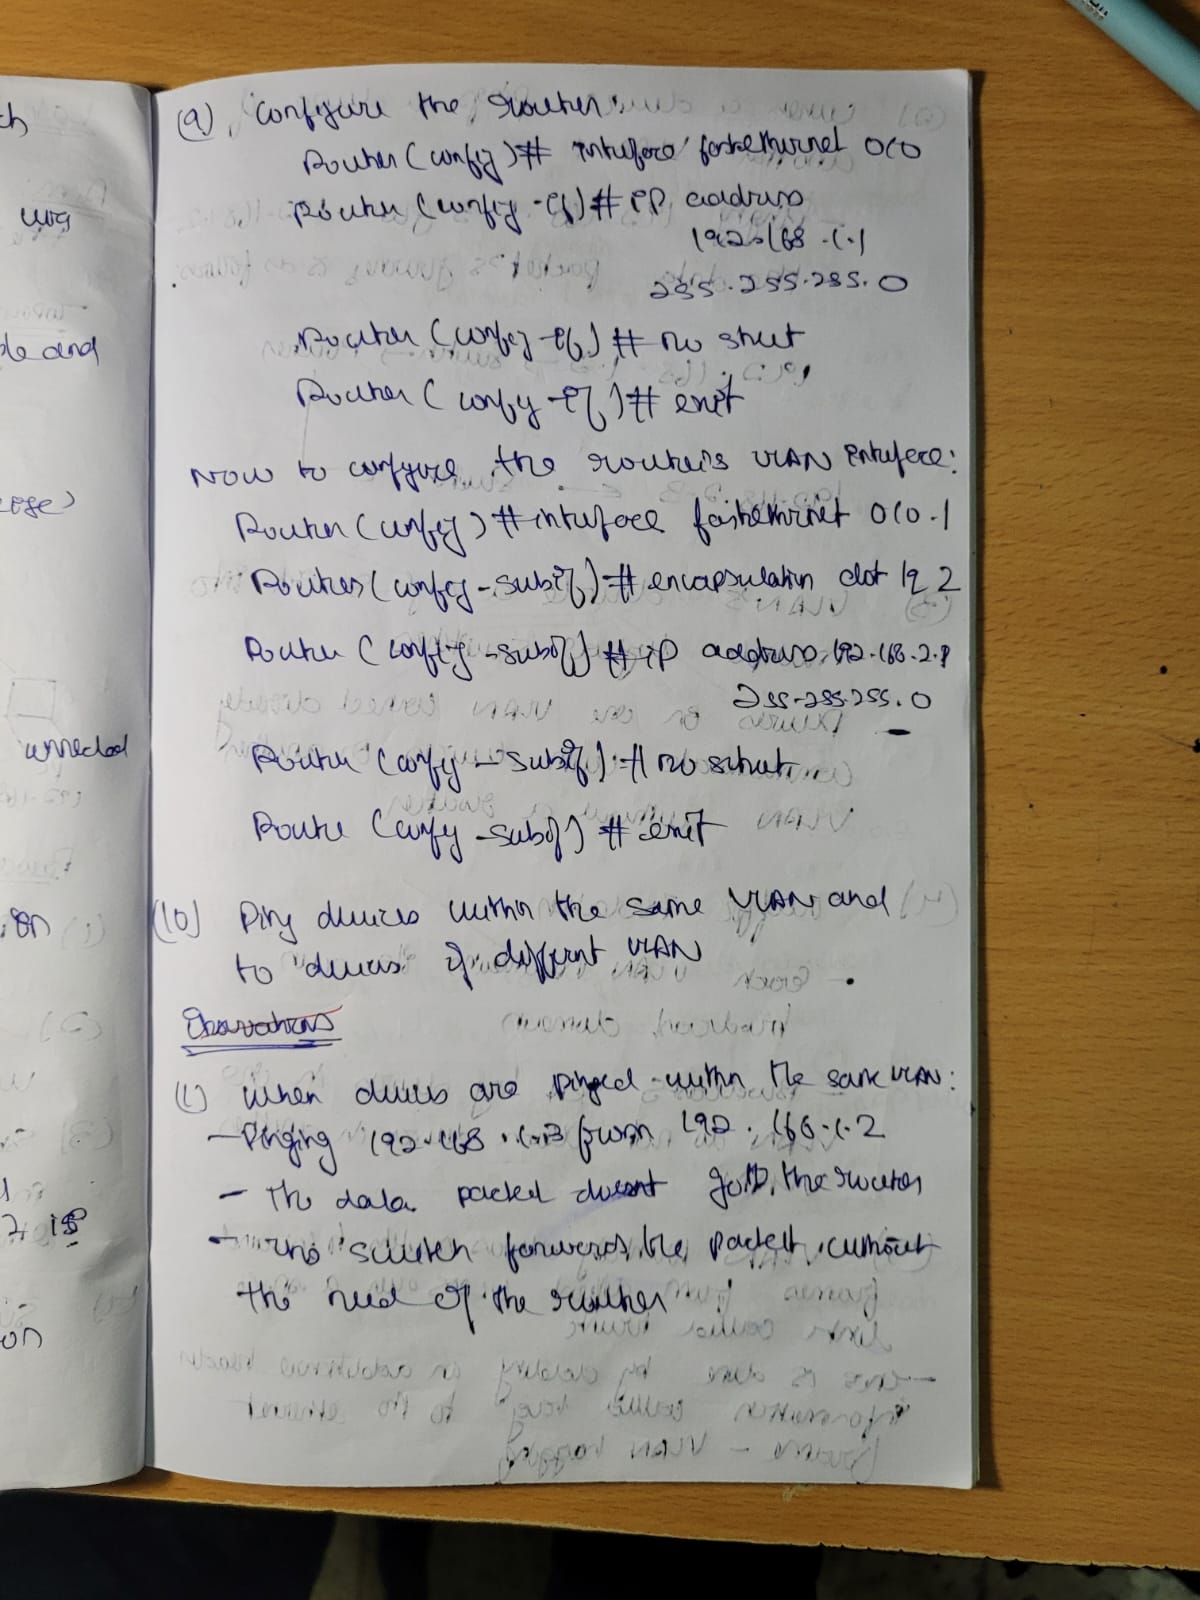 ch
wrg
ple and
connected
ion
7 is
on
(9) Configure the router:
Router (config)# interface fastethernet 0/0
Router (config-if)# ip address
192.168.1.1
255.255.255.0
Router (config-if)# no shut
Router (config-if)# exit
Now to configure the router's VLAN interface:
Router (config)# interface fastethernet 0/0.1
Router (config-subif)# encapsulation dot 1q 2
Router (config-subif)# ip address 192.168.2.1
255.255.255.0
Router (config-subif)# no shut
Route (config-subif)# exit
(10) Ping devices within the same VLAN and
to devices of different VLAN
Observations
(1) When devices are pinged within the same VLAN:
- Pinging 192.168.1.3 from 192.168.1.2
- The data packet doesnt go to the router
- The switch forwards the packet without
the need of the router